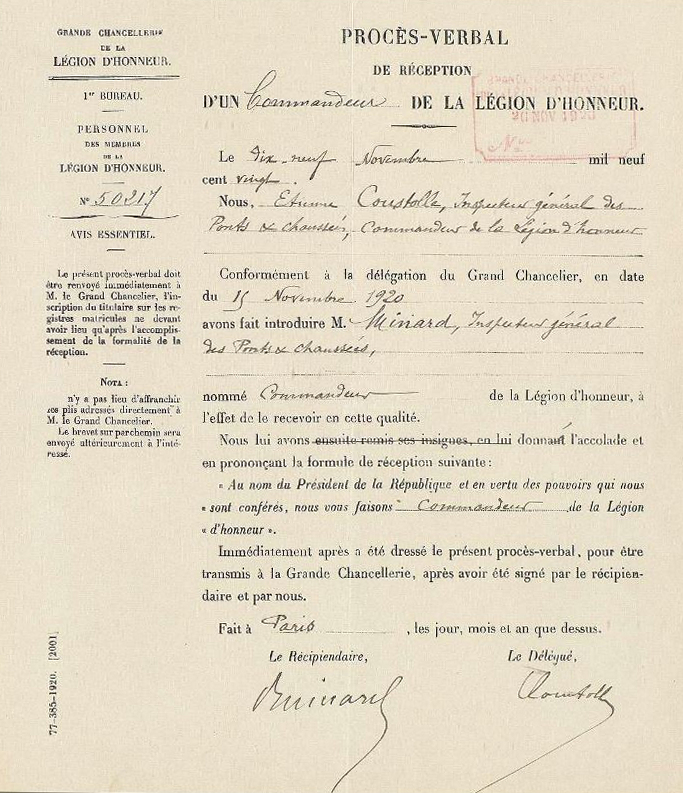 GRANDE CHANCELLERIE
DE LA
LÉGION D'HONNEUR.
1er BUREAU.
PERSONNEL
DES MEMBRES
DE LA
LÉGION D'HONNEUR.
N° 50217
AVIS ESSENTIEL.
Le présent procès-verbal doit
être renvoyé immédiatement à
M. le Grand Chancelier, l'ins-
cription du titulaire sur les re-
gistres matricules ne devant
avoir lieu qu'après l'accomplis-
sement de la formalité de la
réception.
NOTA :
n'y a pas lieu d'affranchir
les plis adressés directement à
M. le Grand Chancelier.
Le brevet sur parchemin sera
envoyé ultérieurement à l'inté-
ressé.
77-385-1920. [2001]
PROCÈS-VERBAL
DE RÉCEPTION
D'UN Commandeur DE LA LÉGION D'HONNEUR.
GRANDE CHANCELLERIE
LÉGION D'HONNEUR
20 NOV 1920
N°
Le Dix neuf Novembre mil neuf
cent vingt.
Nous, Etienne Coustolle, Inspecteur général des
Ponts & chaussées, Commandeur de la Légion d'honneur
Conformément à la délégation du Grand Chancelier, en date
du 15 Novembre 1920
avons fait introduire M. Minard, Inspecteur général
des Ponts & chaussées,
nommé Commandeur de la Légion d'honneur, à
l'effet de le recevoir en cette qualité.
Nous lui avons ensuite remis ses insignes, en lui donnant l'accolade et
en prononçant la formule de réception suivante :
« Au nom du Président de la République et en vertu des pouvoirs qui nous
« sont conférés, nous vous faisons Commandeur de la Légion
« d'honneur ».
Immédiatement après a été dressé le présent procès-verbal, pour être
transmis à la Grande Chancellerie, après avoir été signé par le récipien-
daire et par nous.
Fait à Paris , les jour, mois et an que dessus.
Le Récipiendaire,
Le Délégué,
Minard
Coustolle